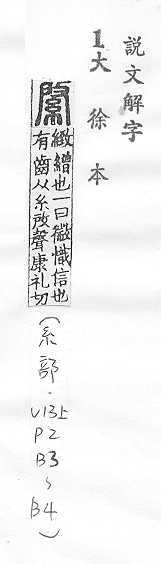 說文解字
1大徐本
綮
緻繒也一曰徽幟信也
有齒从糸𢼄聲康礼切
（糸部．
V13上
P2
B3
~
B4）